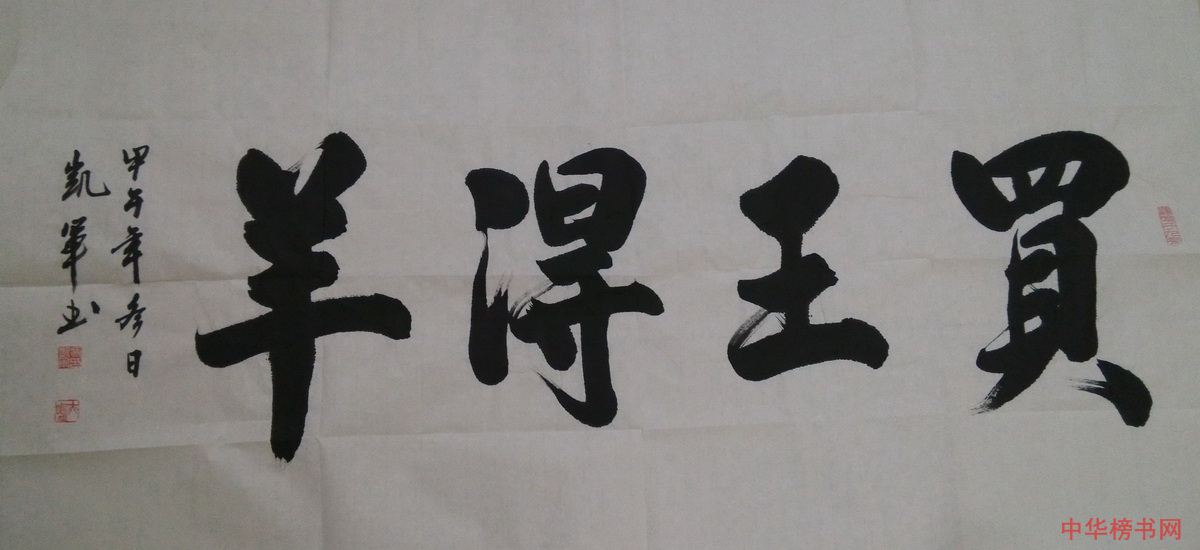 買王得羊
甲午年冬日
凱軍书
中华榜书网